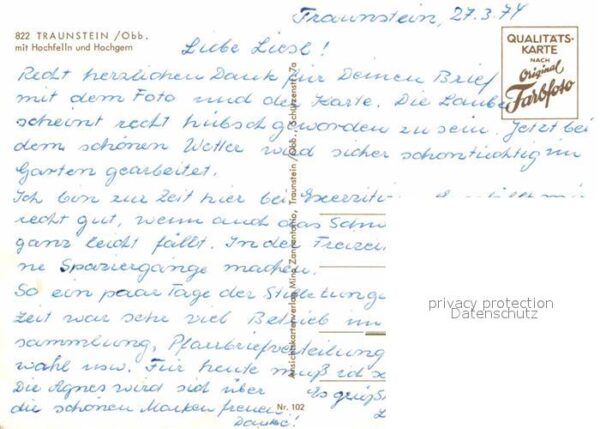 822 TRAUNSTEIN /Obb.
mit Hochfelln und Hochgern
Traunstein, 27.3.74
QUALITÄTS-
KARTE
NACH
Original
Farbfoto
Liebe Liesl!
Recht herzlichen Dank für Deinen Brief
mit dem Foto und der Karte. Die Laube
scheint recht hübsch geworden zu sein. Jetzt bei
dem schönen Wetter wird sicher schon tüchtig im
Garten gearbeitet.
Ich bin zur Zeit hier bei Exerzitien.
recht gut, wenn auch das
ganz leicht fällt. In der
ne Spaziergänge machen.
So ein paar Tage der Stille tun
Zeit war sehr viel Betrieb im
sammlung, Pfarrbriefverteilung
wahl usw. Für heute muß ich
Die Agnes wird sich über
die schönen Marken freuen!
Danke!
Es grüßt
Ansichtskartenverlag Mina Zannantonio, Traunstein /Obb., Schützenstr. 7a
Nr. 102
privacy protection
Datenschutz